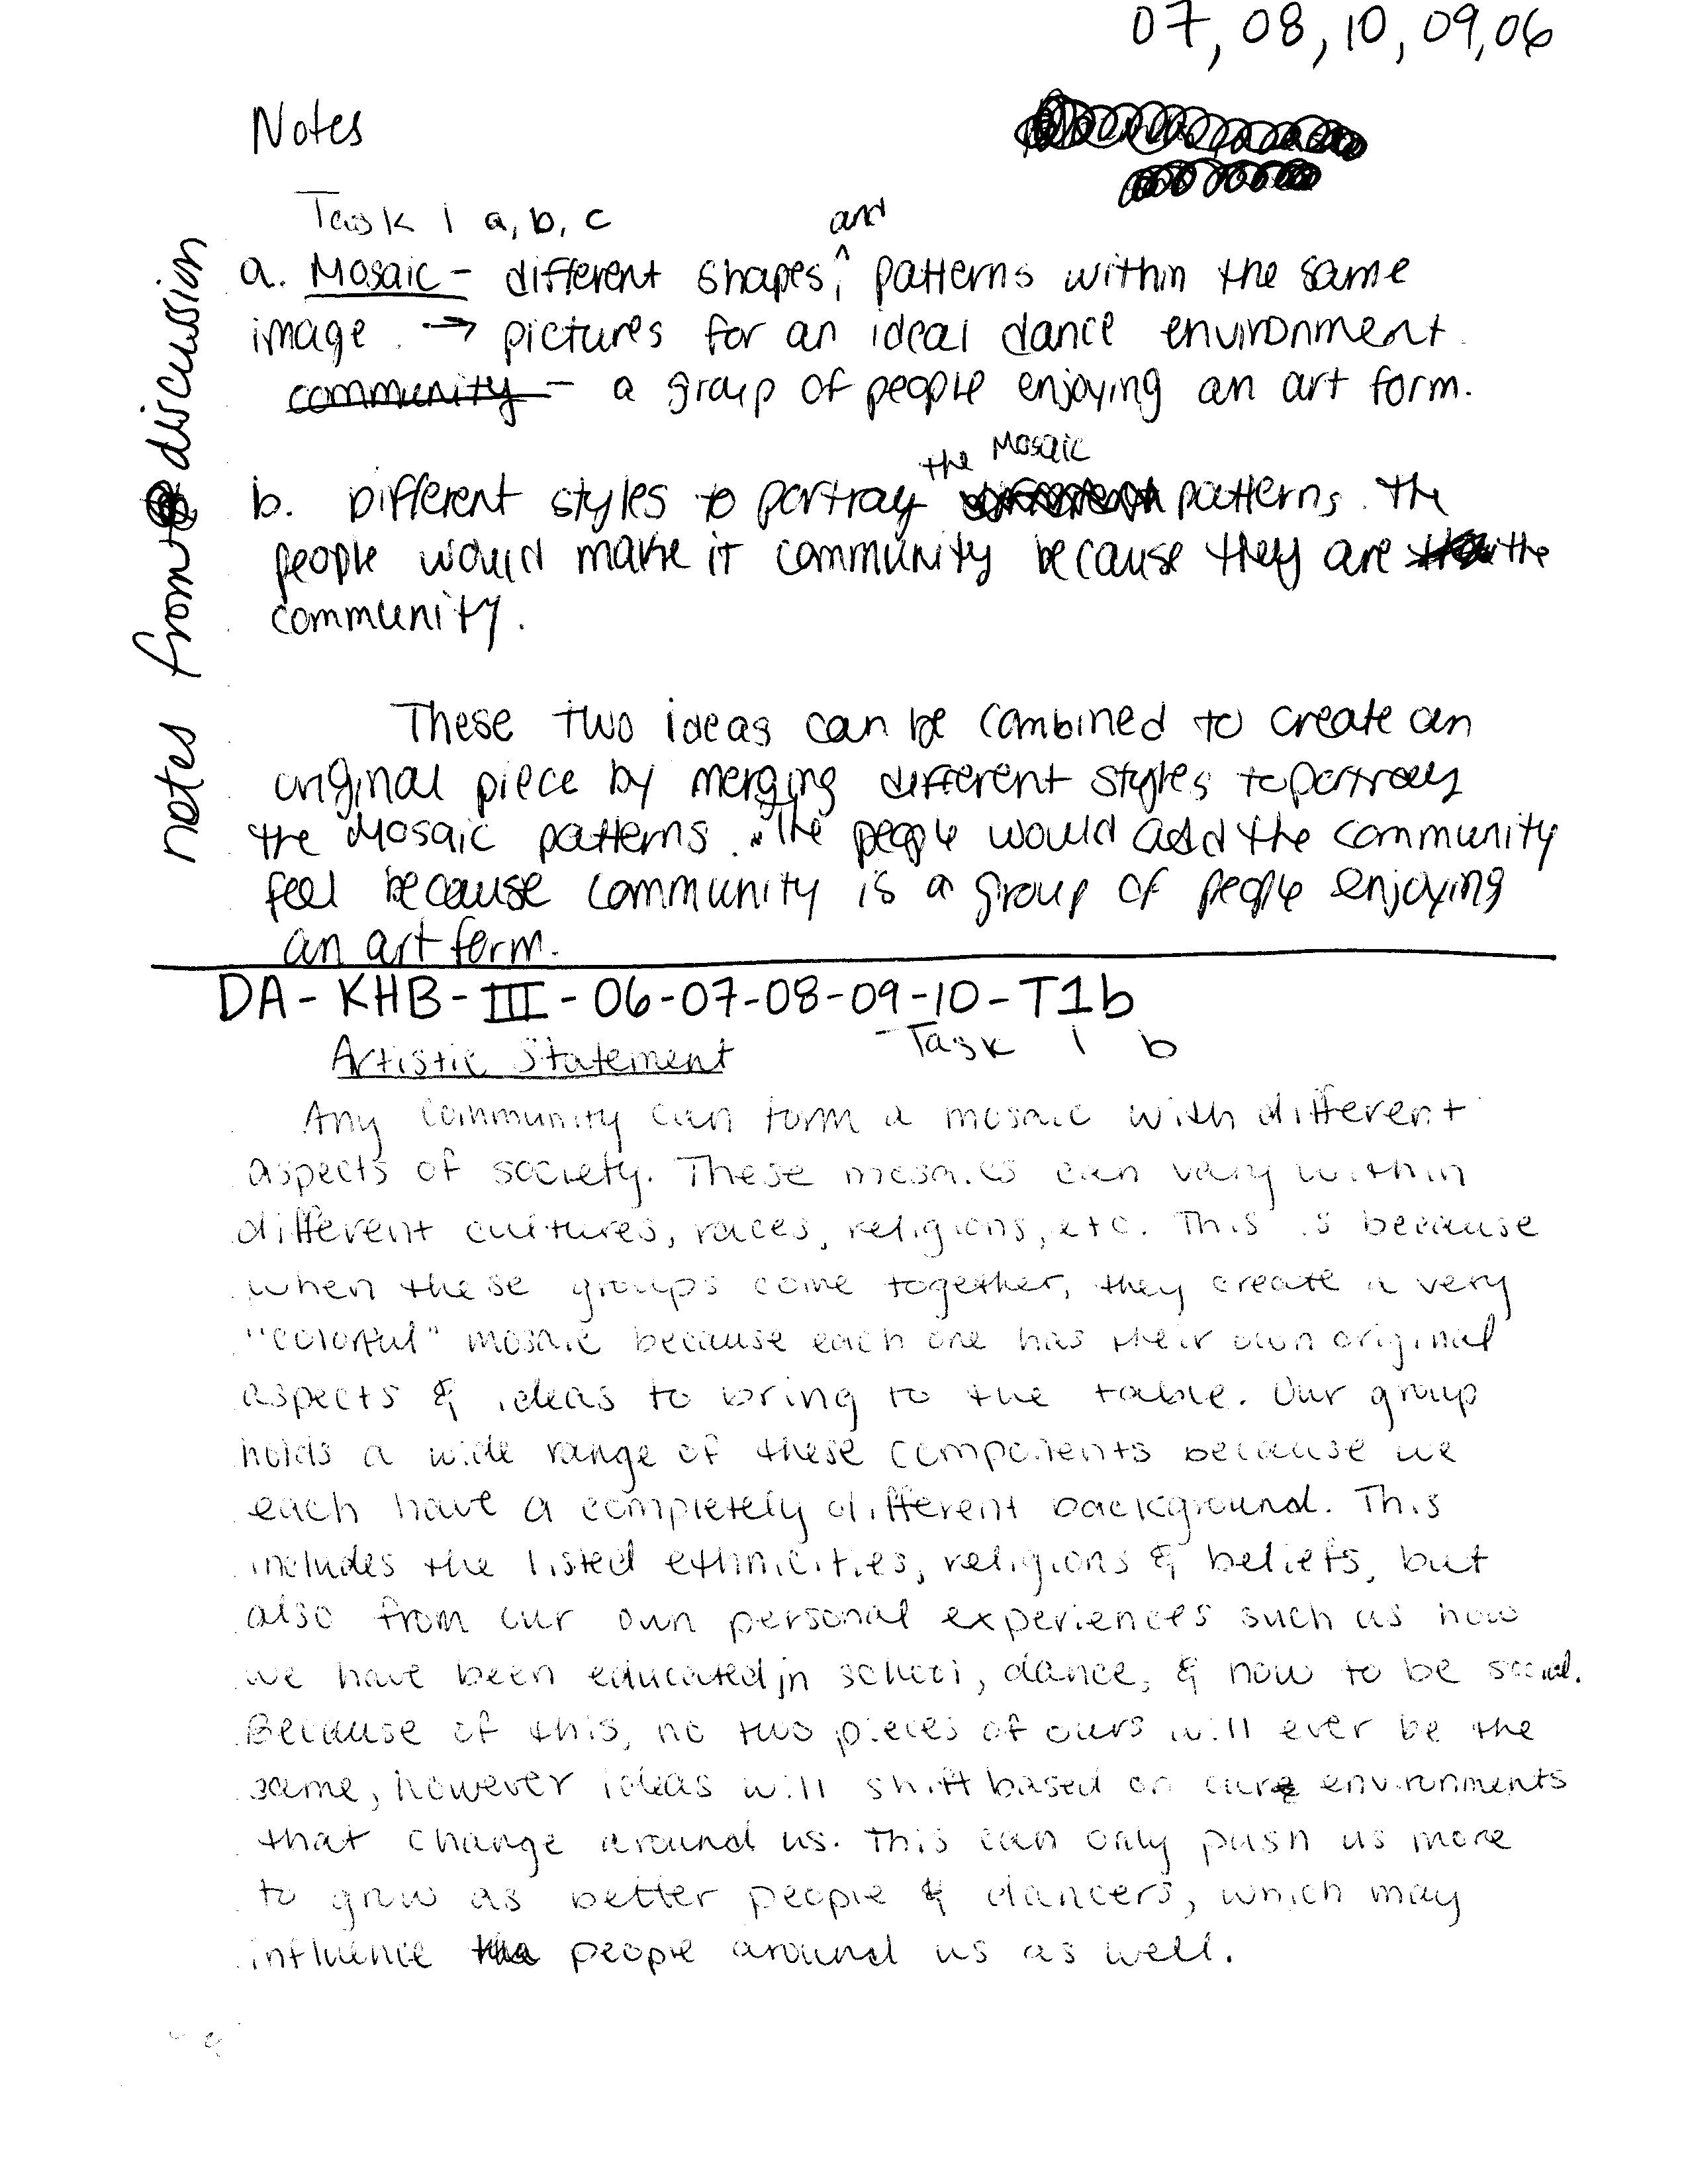 07, 08, 10, 09, 06
Notes
Task 1 a, b, c
and
a. Mosaic - different shapes, ^ patterns within the same
image. → pictures for an ideal dance environment.
community - a group of people enjoying an art form.
the Mosaic
b. Different styles to portray patterns. The
people would make it community because they are the
community.
These two ideas can be combined to create an
original piece by merging different styles to portray
the Mosaic patterns. The people would add the community
feel because community is a group of people enjoying
an art form.
notes from discussion
DA-KHB-III-06-07-08-09-10-T1b
Task 1 b
Artistic Statement
Any community can form a mosaic with different
aspects of society. These mosaics can vary within
different cultures, races, religions, etc. This is because
when these groups come together, they create a very
"colorful" mosaic because each one has their own original
aspects & ideas to bring to the table. Our group
holds a wide range of these components because we
each have a completely different background. This
includes the listed ethnicities, religions & beliefs, but
also from our own personal experiences such as how
we have been educated in school, dance, & how to be social.
Because of this, no two pieces of ours will ever be the
same, however ideas will shift based on our environments
that change around us. This can only push us more
to grow as better people & dancers, which may
influence people around us as well.